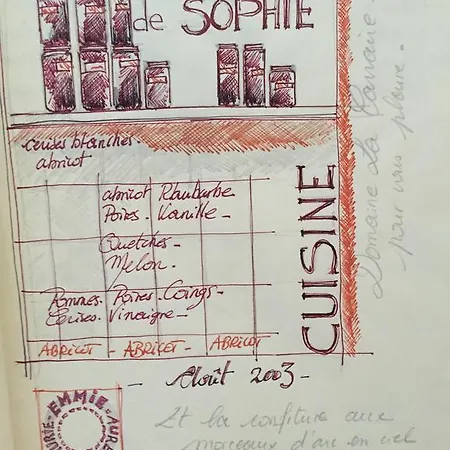 de SOPHIE
cerises blanches -
abricot
abricot Rhubarbe
Poires - Vanille -
Quetches -
Melon.
Pommes - Poires - Coings -
Cerises - Vinaigre -
ABRICOT - ABRICOT - ABRICOT
CUISINE
- Août 2003 -
Domaine La
pour vous plaire.
EMMIE
Et la confiture aux
morceaux d'arc en ciel